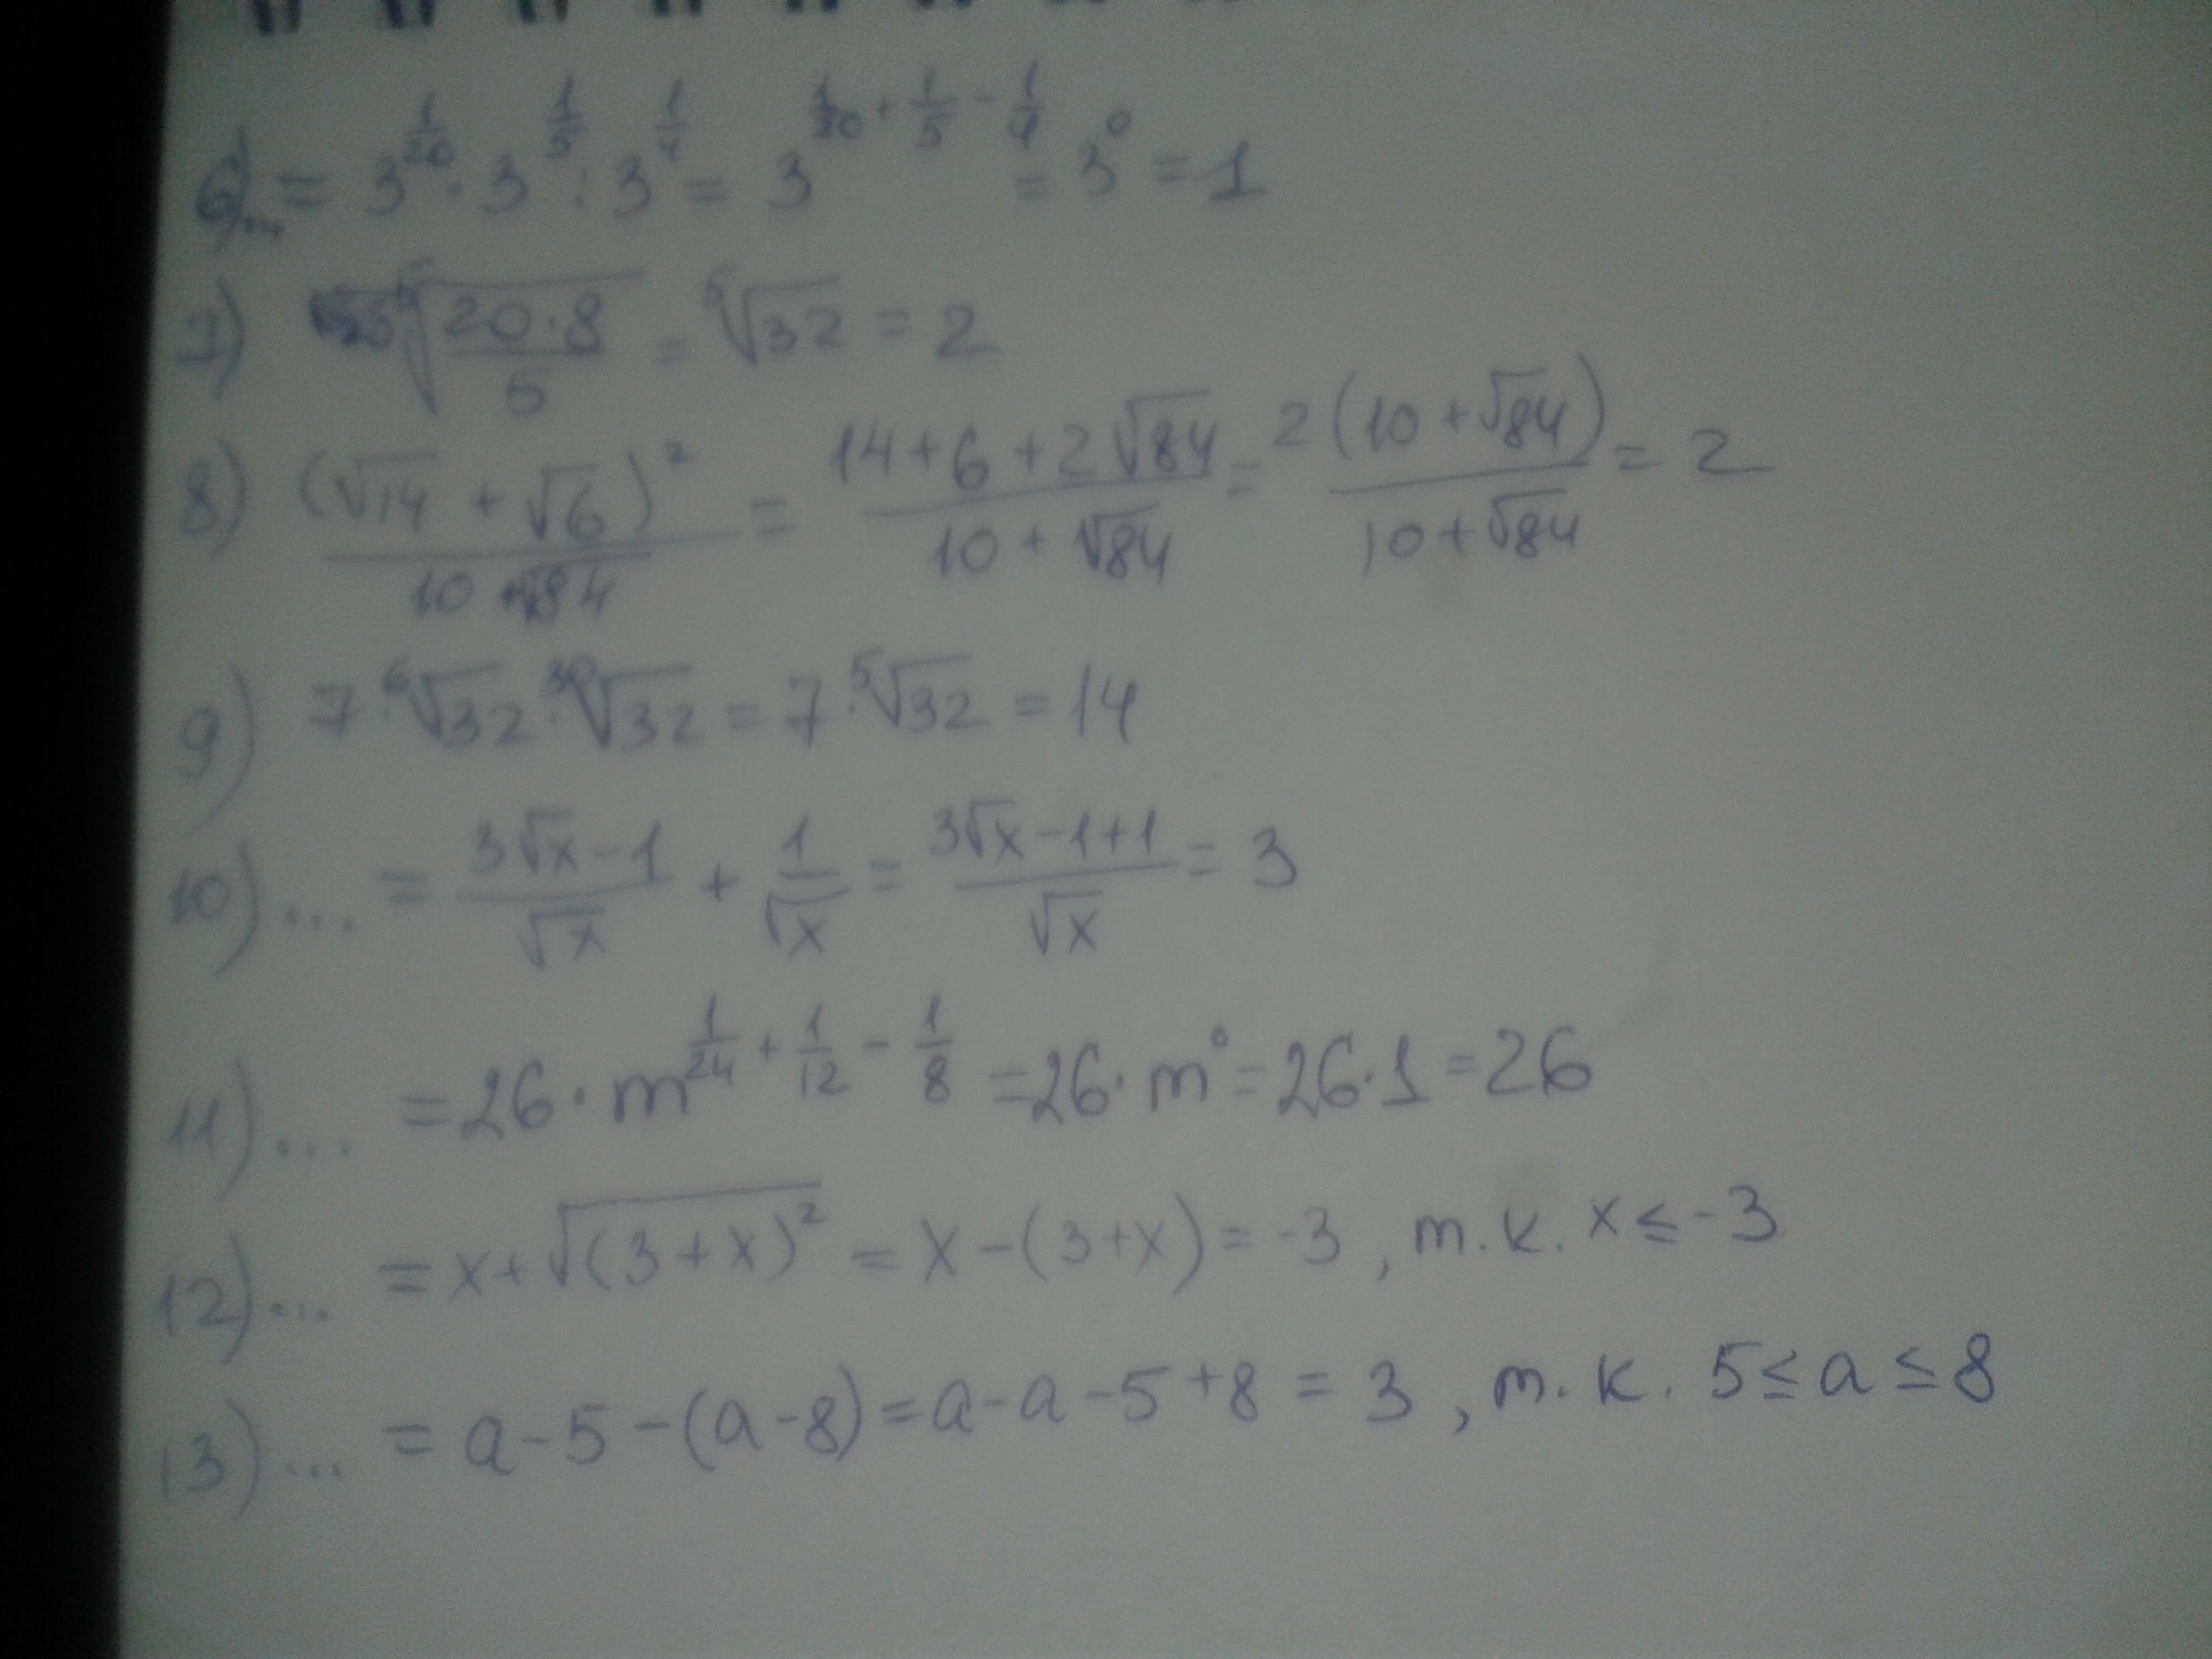 6)... = 3^{1/20} · 3^{1/5} : 3^{1/4} = 3^{1/20 + 1/5 - 1/4} = 3^0 = 1
7) ⁵√(20·8/5) = ⁵√32 = 2
8) (√14 + √6)²/(10 + √84) = (14 + 6 + 2√84)/(10 + √84) = 2(10 + √84)/(10 + √84) = 2
9) 7 · ⁶√32 · ³⁰√32 = 7 · ⁵√32 = 14
10) ... = (3√x - 1)/√x + 1/√x = (3√x - 1 + 1)/√x = 3
11) ... = 26 · m^{1/24 + 1/12 - 1/8} = 26 · m^0 = 26 · 1 = 26
12) ... = x + √((3 + x)²) = x - (3 + x) = -3, т.к. x ≤ -3
13) ... = a - 5 - (a - 8) = a - a - 5 + 8 = 3, т.к. 5 ≤ a ≤ 8